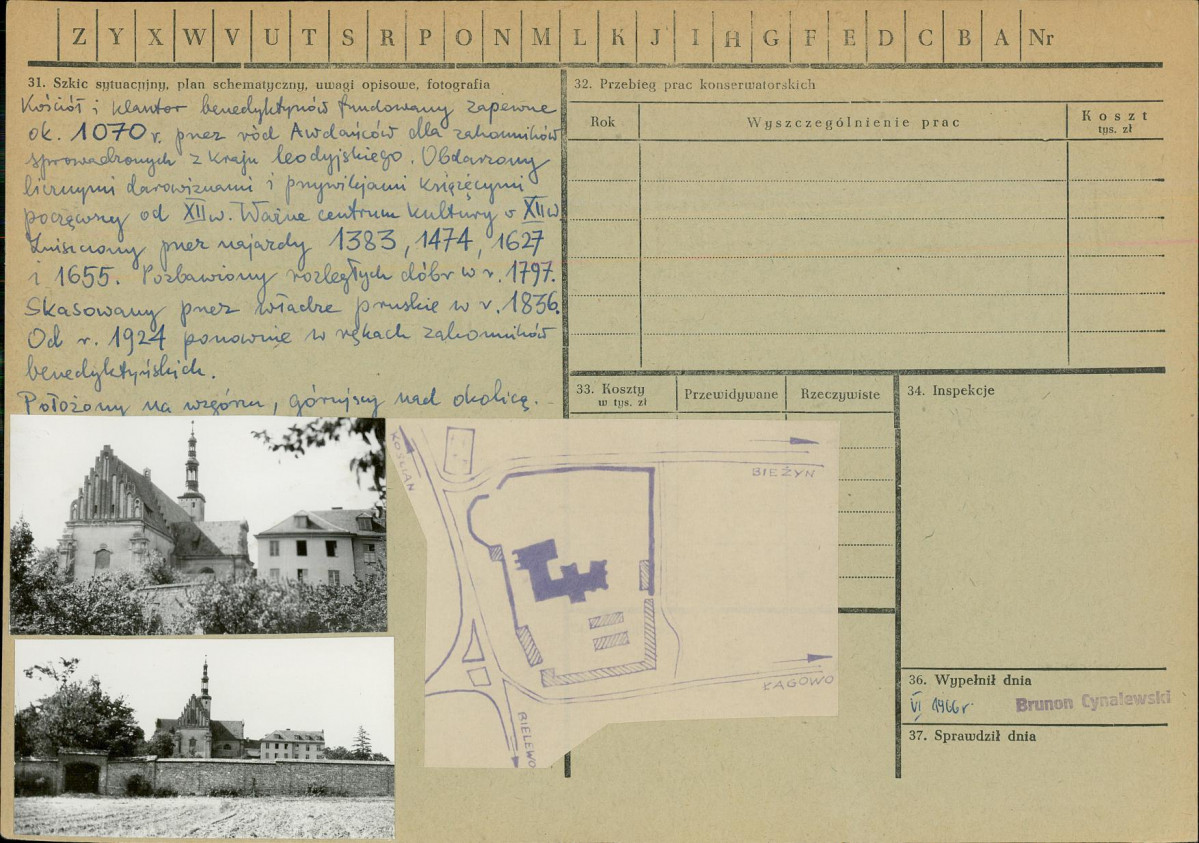 Z Y X W V U T S R P O N M L K J I H G F E D C B A Nr
31. Szkic sytuacyjny, plan schematyczny, uwagi opisowe, fotografia
Kościół i klasztor benedyktynów fundowany zapewne
ok. 1070 r. przez ród Awdańców dla zakonników
sprowadzonych z kraju leodyjskiego. Obdarzony
licznymi darowiznami i przywilejami książęcymi
począwszy od XII w. Ważne centrum kultury v XII w
Zniszczony przez najazdy 1383, 1474, 1627
i 1655. Pozbawiony rozległych dóbr w r. 1797.
Skasowany przez władze pruskie w r. 1836.
Od r. 1924 ponownie w rękach zakonników
benedyktyńskich.
Położony na wzgórzu, górujący nad okolicą.
32. Przebieg prac konserwatorskich
Rok
Wyszczególnienie prac
Koszt
tys. zł
33. Koszty
w tys. zł
Przewidywane
Rzeczywiste
34. Inspekcje
KOŚCIAN
BIEŻYN
ŁAGOWO
BIELEWO
36. Wypełnił dnia
VI 1966 r.
Brunon Cynalewski
37. Sprawdził dnia